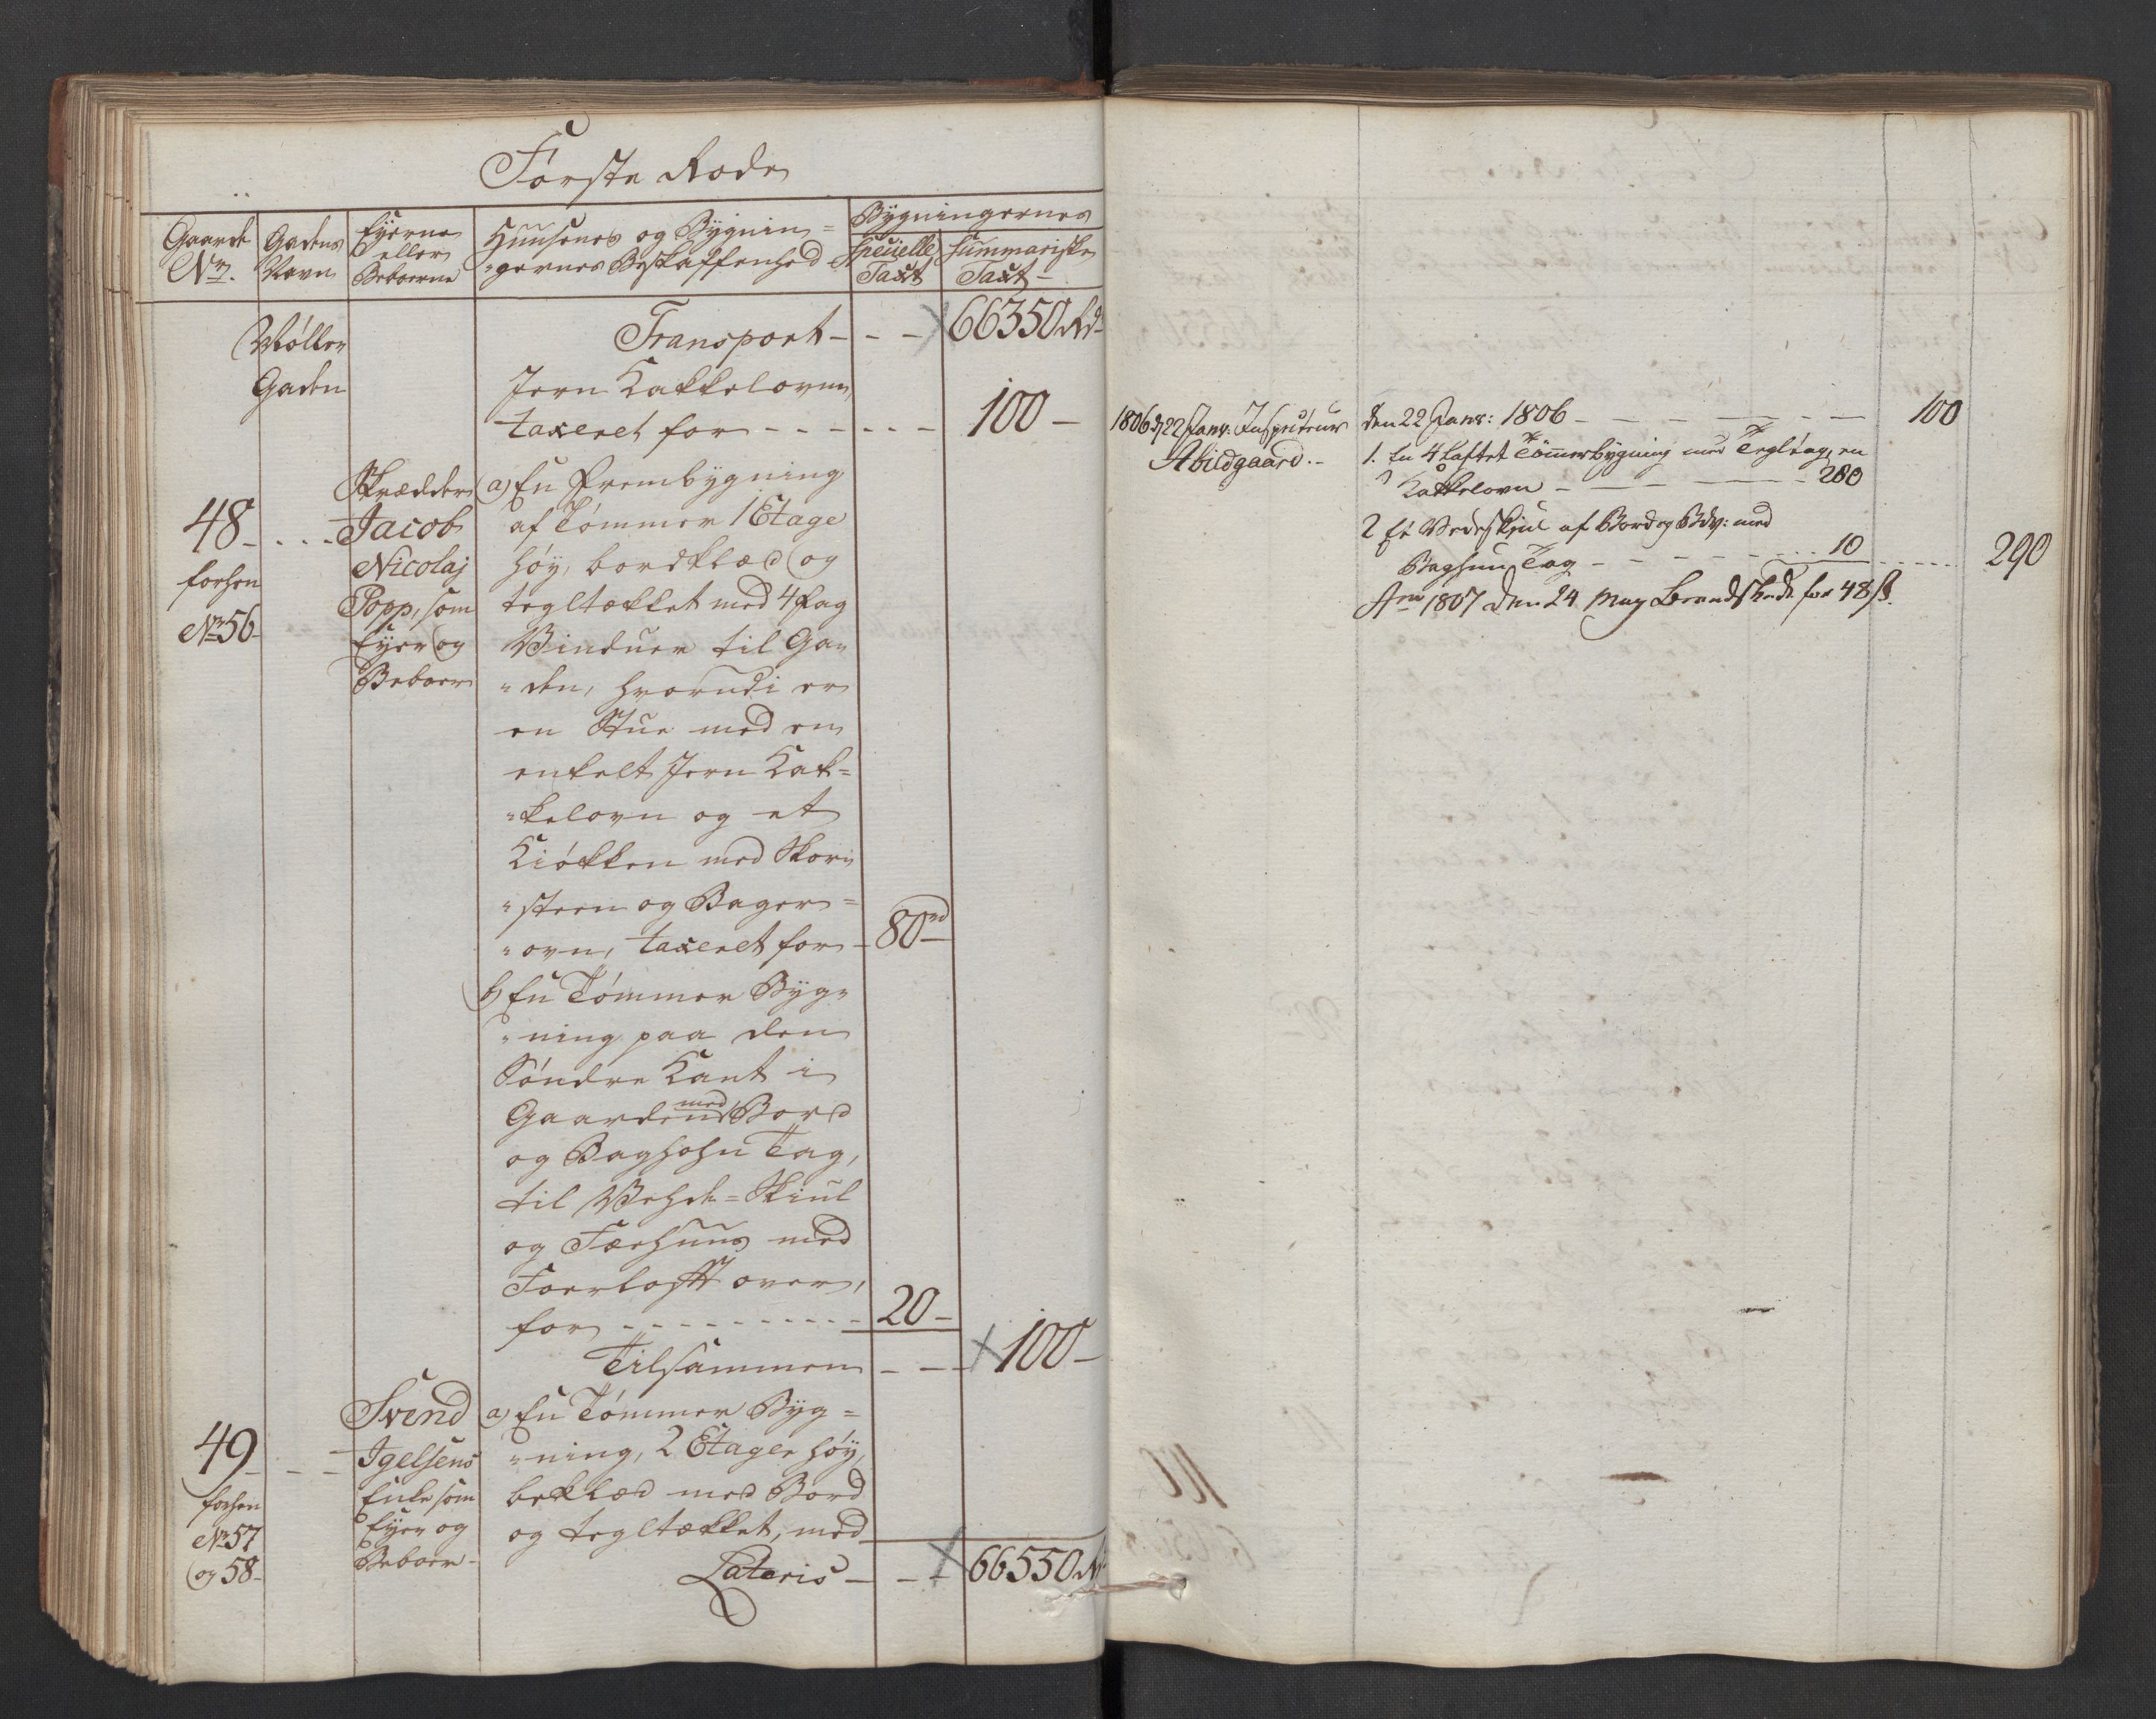 Første Rode
Gaarde
No.
Gadens
Navn
Eyerne
eller
Beboerne
Huusenes og Bygnin=
"gernes Beskaffenhed
Bygningernes
Specielle
Taxt
Summariske
Taxt
Møller
Gaden
Transport - - - 66350 Rd
Jern Kakkelovnn,
taxeret for - - - - - - 100 -
48 - - -
forhen
No 56
Skrædder
Jacob
Nicolaj
Popp, som
Eyer og
Beboer
a) En Frembygning
af Tømmer 1 Etage
høy, bordklæd og
tegltækket med 4 Fag
Vinduer til Ga"
"den, hvorudi er
en Stue med en
enkelt Jern Kak=
"kelovn og et
Kiøkken med Skor"
"steen og Bager=
"ovn, taxeret for - 80 rd
b) En Tømmer Byg"
"ning paa den
Søndre Kant i
Gaarden med Bord
og Baghohn Tag,
til Vehde=Skiul
og Fæehuus med
Foerlofft over,
for - - - - - - - - - - 20 -
Tilsammen - - - 100 -
49 - - -
forhen
No 57
og 58
Svend
Igelsens
Enke som
Eyer og
Beboer
a) En Tømmer Byg=
"ning, 2 Etager høy,
beklæd med Bord
og tegltækket, med
Lateris - - - 66550 Rd
1806 d 22 Janr: Inspecteur
Abildgaard.-
Den 22 Janr: 1806 - - - - - 100
1. En 4 Laftet Tømmerbygning med Tegltag, en
Kakkelovn - - - - - 280
2 Et Vedeskiul af Bord og Bdv: med
Baghun Tag - - - - - 10 - - - - 290
Aro 1807 den 24 May Brandskade for 48 ß.